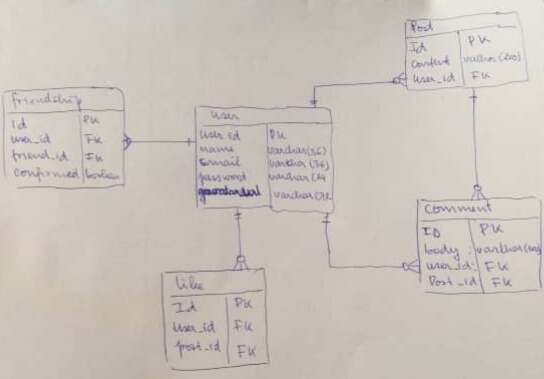 Post
Id PK
Content varchar(200)
user_id FK
friendship
Id PK
user_id FK
friend_id FK
confirmed boolean
User
user id PK
name varchar(25)
email varchar
password varchar
varchar
Comment
ID PK
body : varchar
user_id: FK
Post_id FK
Like
Id PK
user_id FK
post_id FK